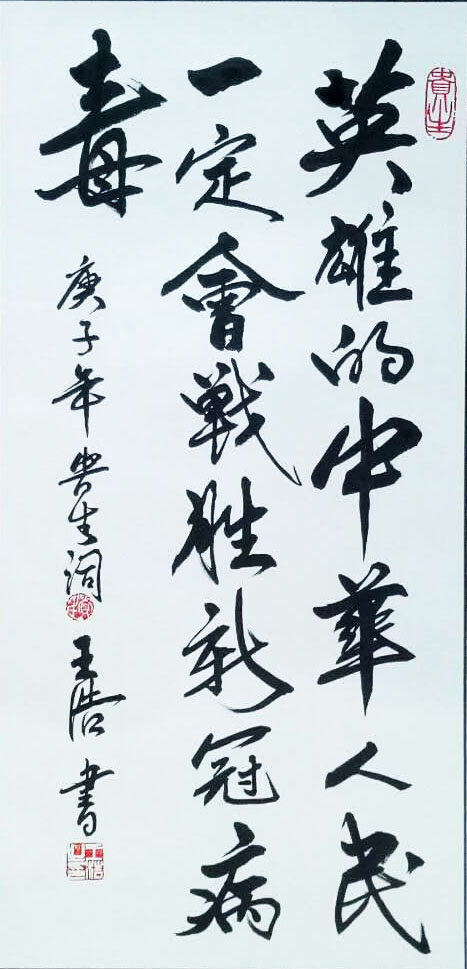 英雄的中华人民
一定會戰胜新冠病
毒
庚子年贵生词
王浩書